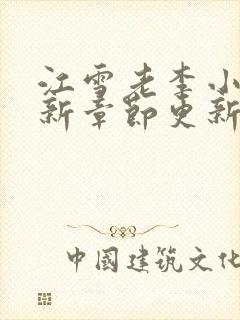 江雪老李小
新章節更新
中國建筑文化